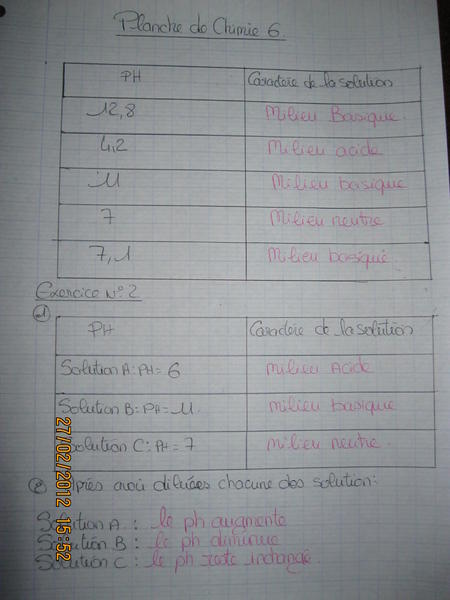 Planche de Chimie 6.
PH Caractère de la solution
12,8 Milieu Basique.
4,2 Milieu acide
11 Milieu basique
7 Milieu neutre
7,1 Milieu basique
Exercice N°2
1 PH Caractère de la solution
Solution A: PH= 6 Milieu Acide
Solution B: PH= 11. milieu basique
Solution C: PH= 7 milieu neutre.
2 Après avoir diluées chacune des solution:
Solution A : le ph augmente
Solution B : le ph diminue
Solution C : le ph reste inchangé.
27/02/2012 15:52